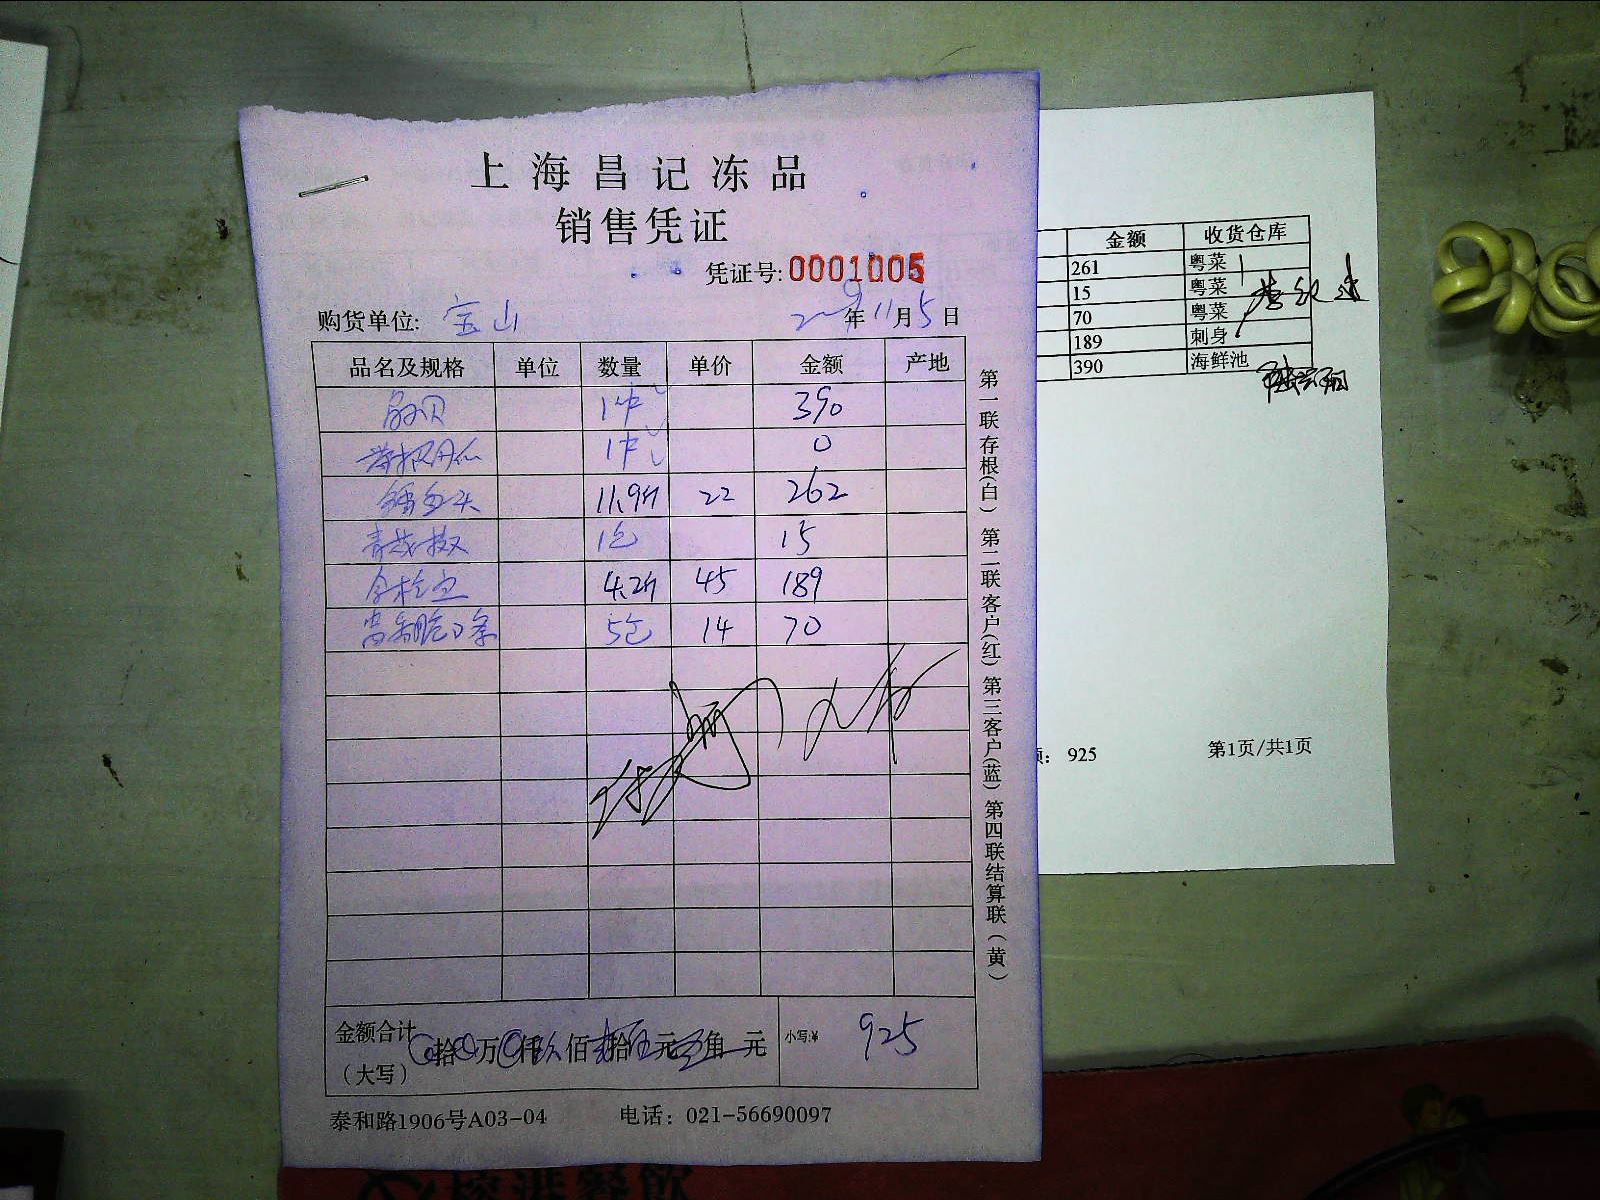 上海昌记冻品
销售凭证
凭证号:0001005
购货单位: 宝山 年11月5日
品名及规格 单位 数量 单价 金额 产地
1件 390
1件 0
11.9斤 22 262
1包 15
4.2斤 45 189
5包 14 70
金额合计 拾 万 仟 玖 佰 贰 拾 伍 元 角 元 小写:¥ 925
(大写)
泰和路1906号A03-04 电话: 021-56690097
第一联存根(白) 第二联客户(红) 第三客户(蓝) 第四联结算联(黄)
金额 收货仓库
261 粤菜
15 粤菜
70 粤菜
189 刺身
390 海鲜池
925 第1页/共1页